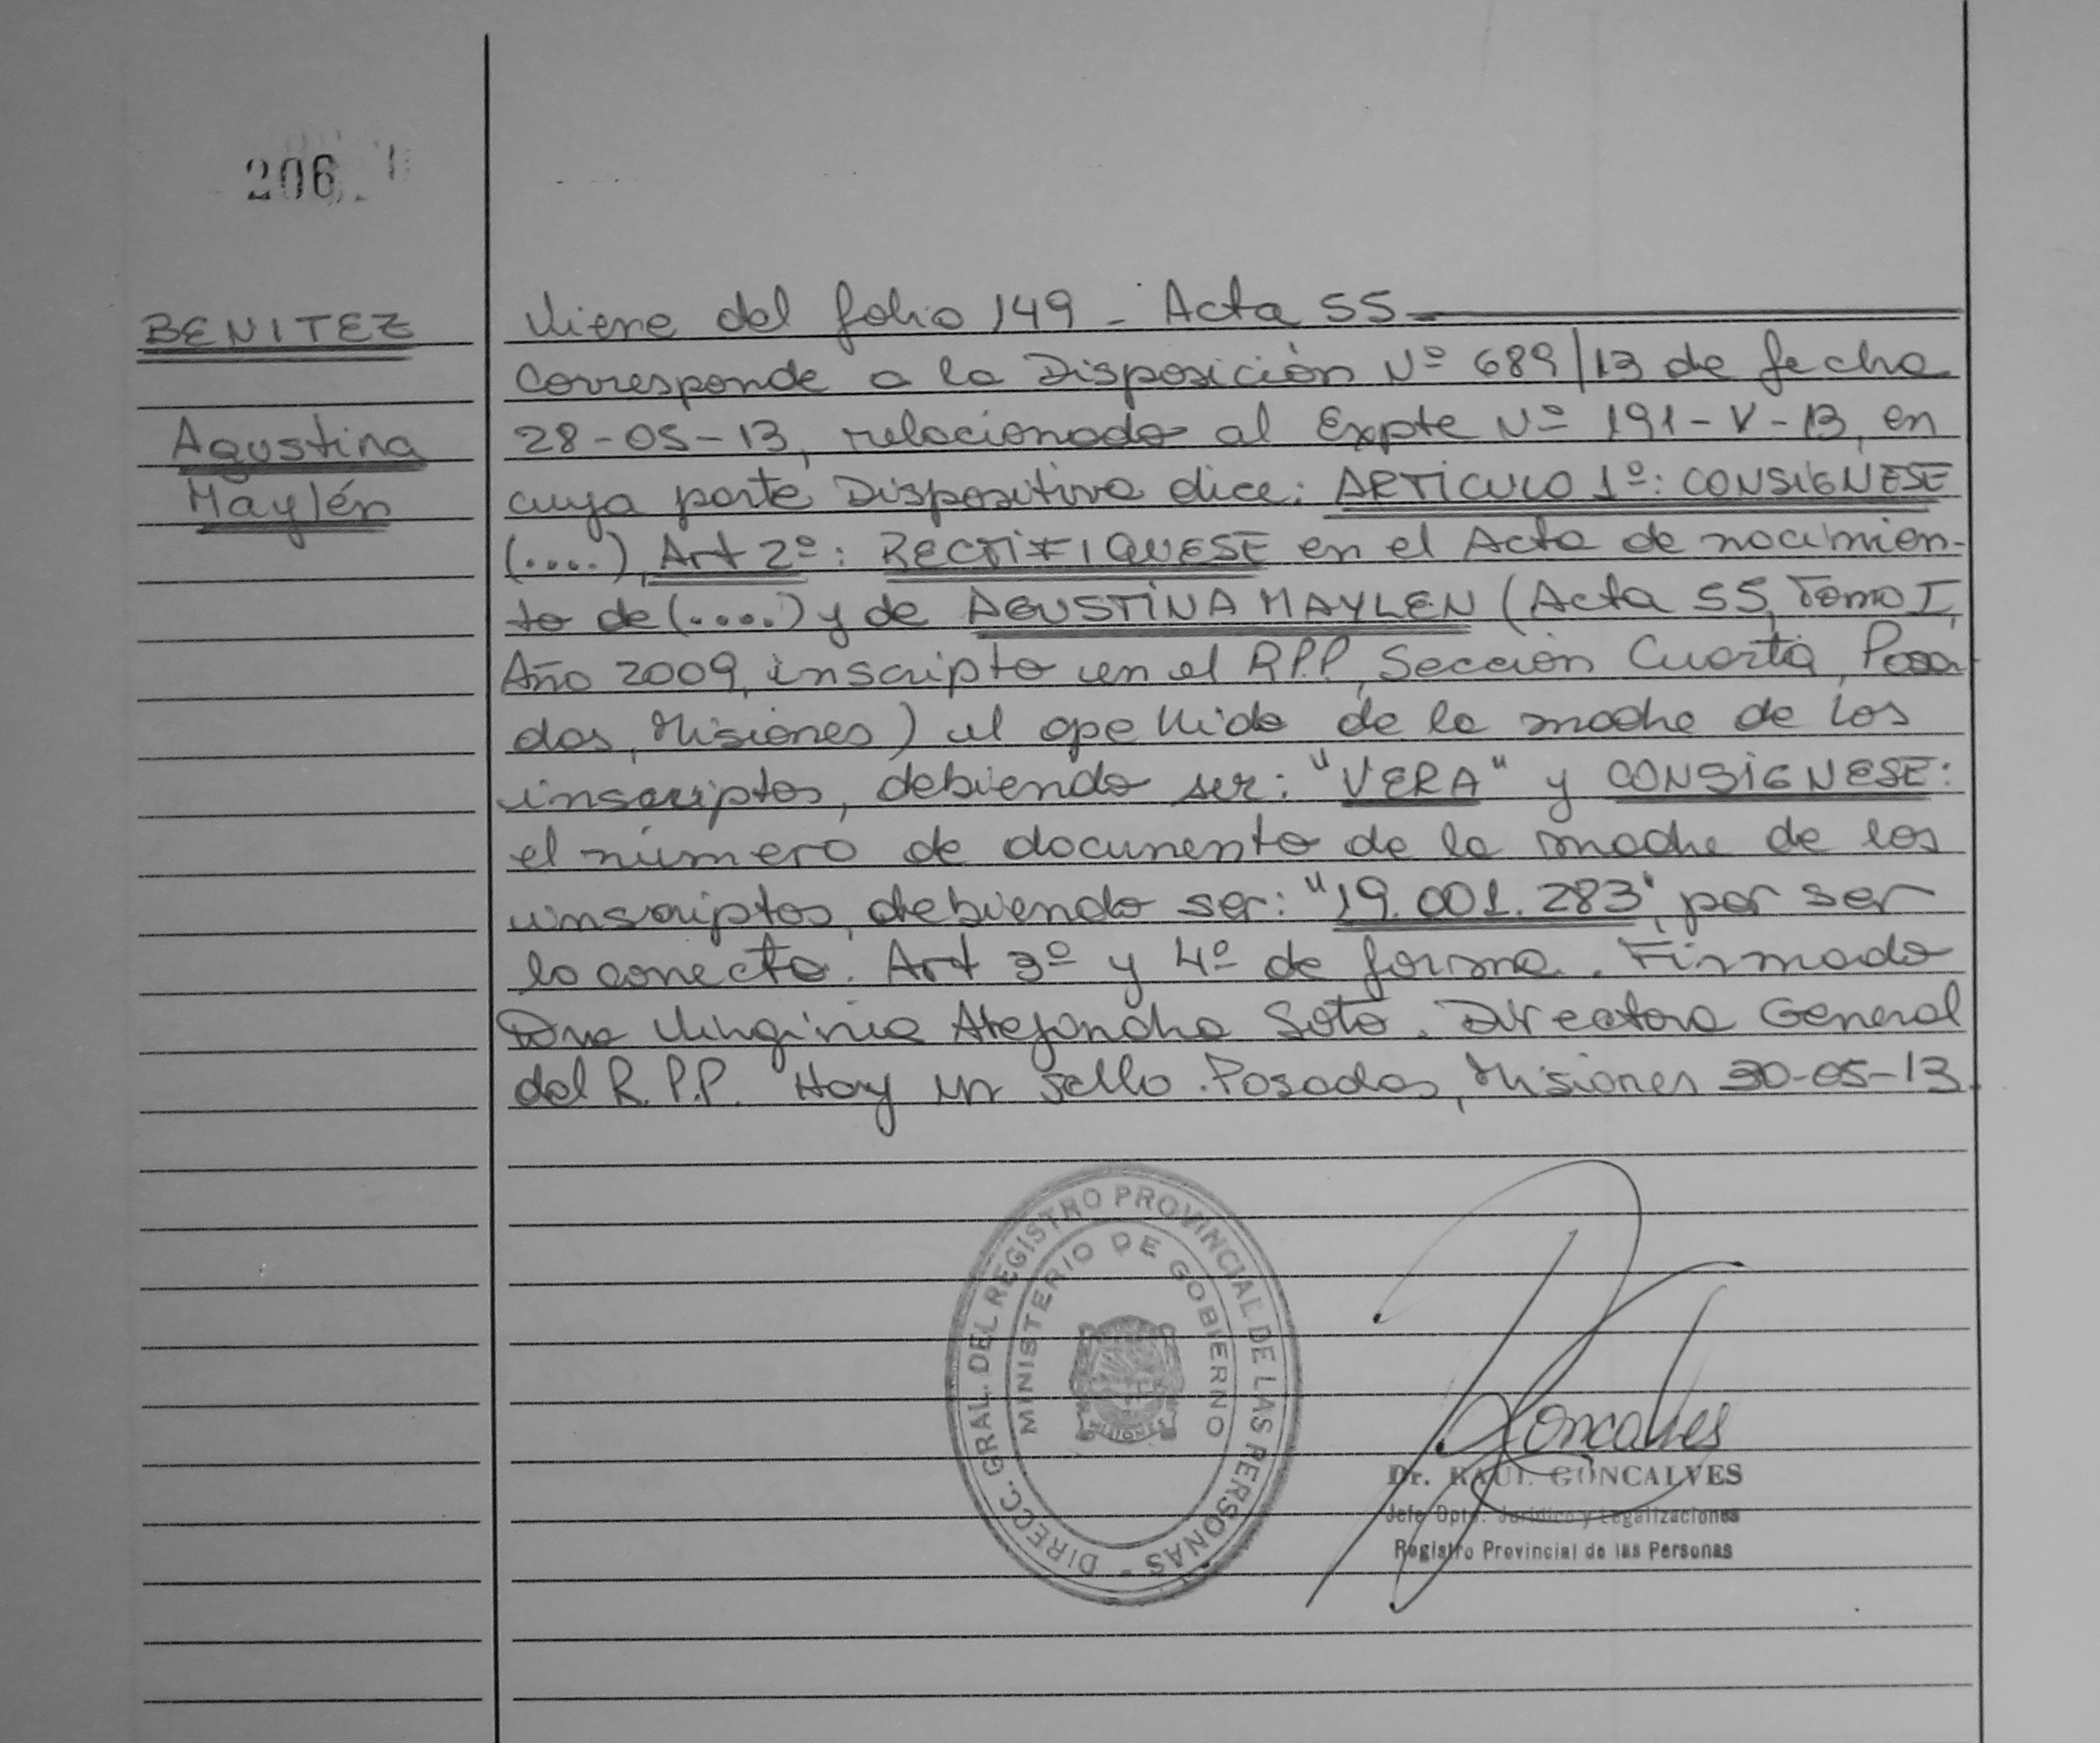 206
BENITEZ
Agustina
Maylén
Viene del folio 149 - Acta 55
Corresponde a la Disposición Nº 689/13 de fecha
28-05-13, relacionado al Expte Nº 191-V-13, en
cuya parte Dispositiva dice: ARTICULO 1º: CONSIGNESE
(....), Art 2º: RECTIFIQUESE en el Acta de nacimien-
to de (....) y de AGUSTINA MAYLEN (Acta 55, Tomo I,
Año 2009, inscripto en el R.P.P, Sección Cuarta, Posa
das, Misiones) el apellido de la madre de los
inscriptos, debiendo ser: "VERA" y CONSIGNESE:
el número de documento de la madre de los
inscriptos, debiendo ser: "19.001.283", por ser
lo correcto. Art 3º y 4º de forma. Firmado
Dra Virginia Alejandra Soto. Directora General
del R.P.P. Hay un sello. Posadas, Misiones 30-05-13
DIRECC. GRAL. DEL REGISTRO PROVINCIAL DE LAS PERSONAS -
MINISTERIO DE GOBIERNO
MISIONES
Goncalves
Dr. RAUL GONCALVES
Jefe Dpto. Jurídico y Legalizaciones
Registro Provincial de las Personas